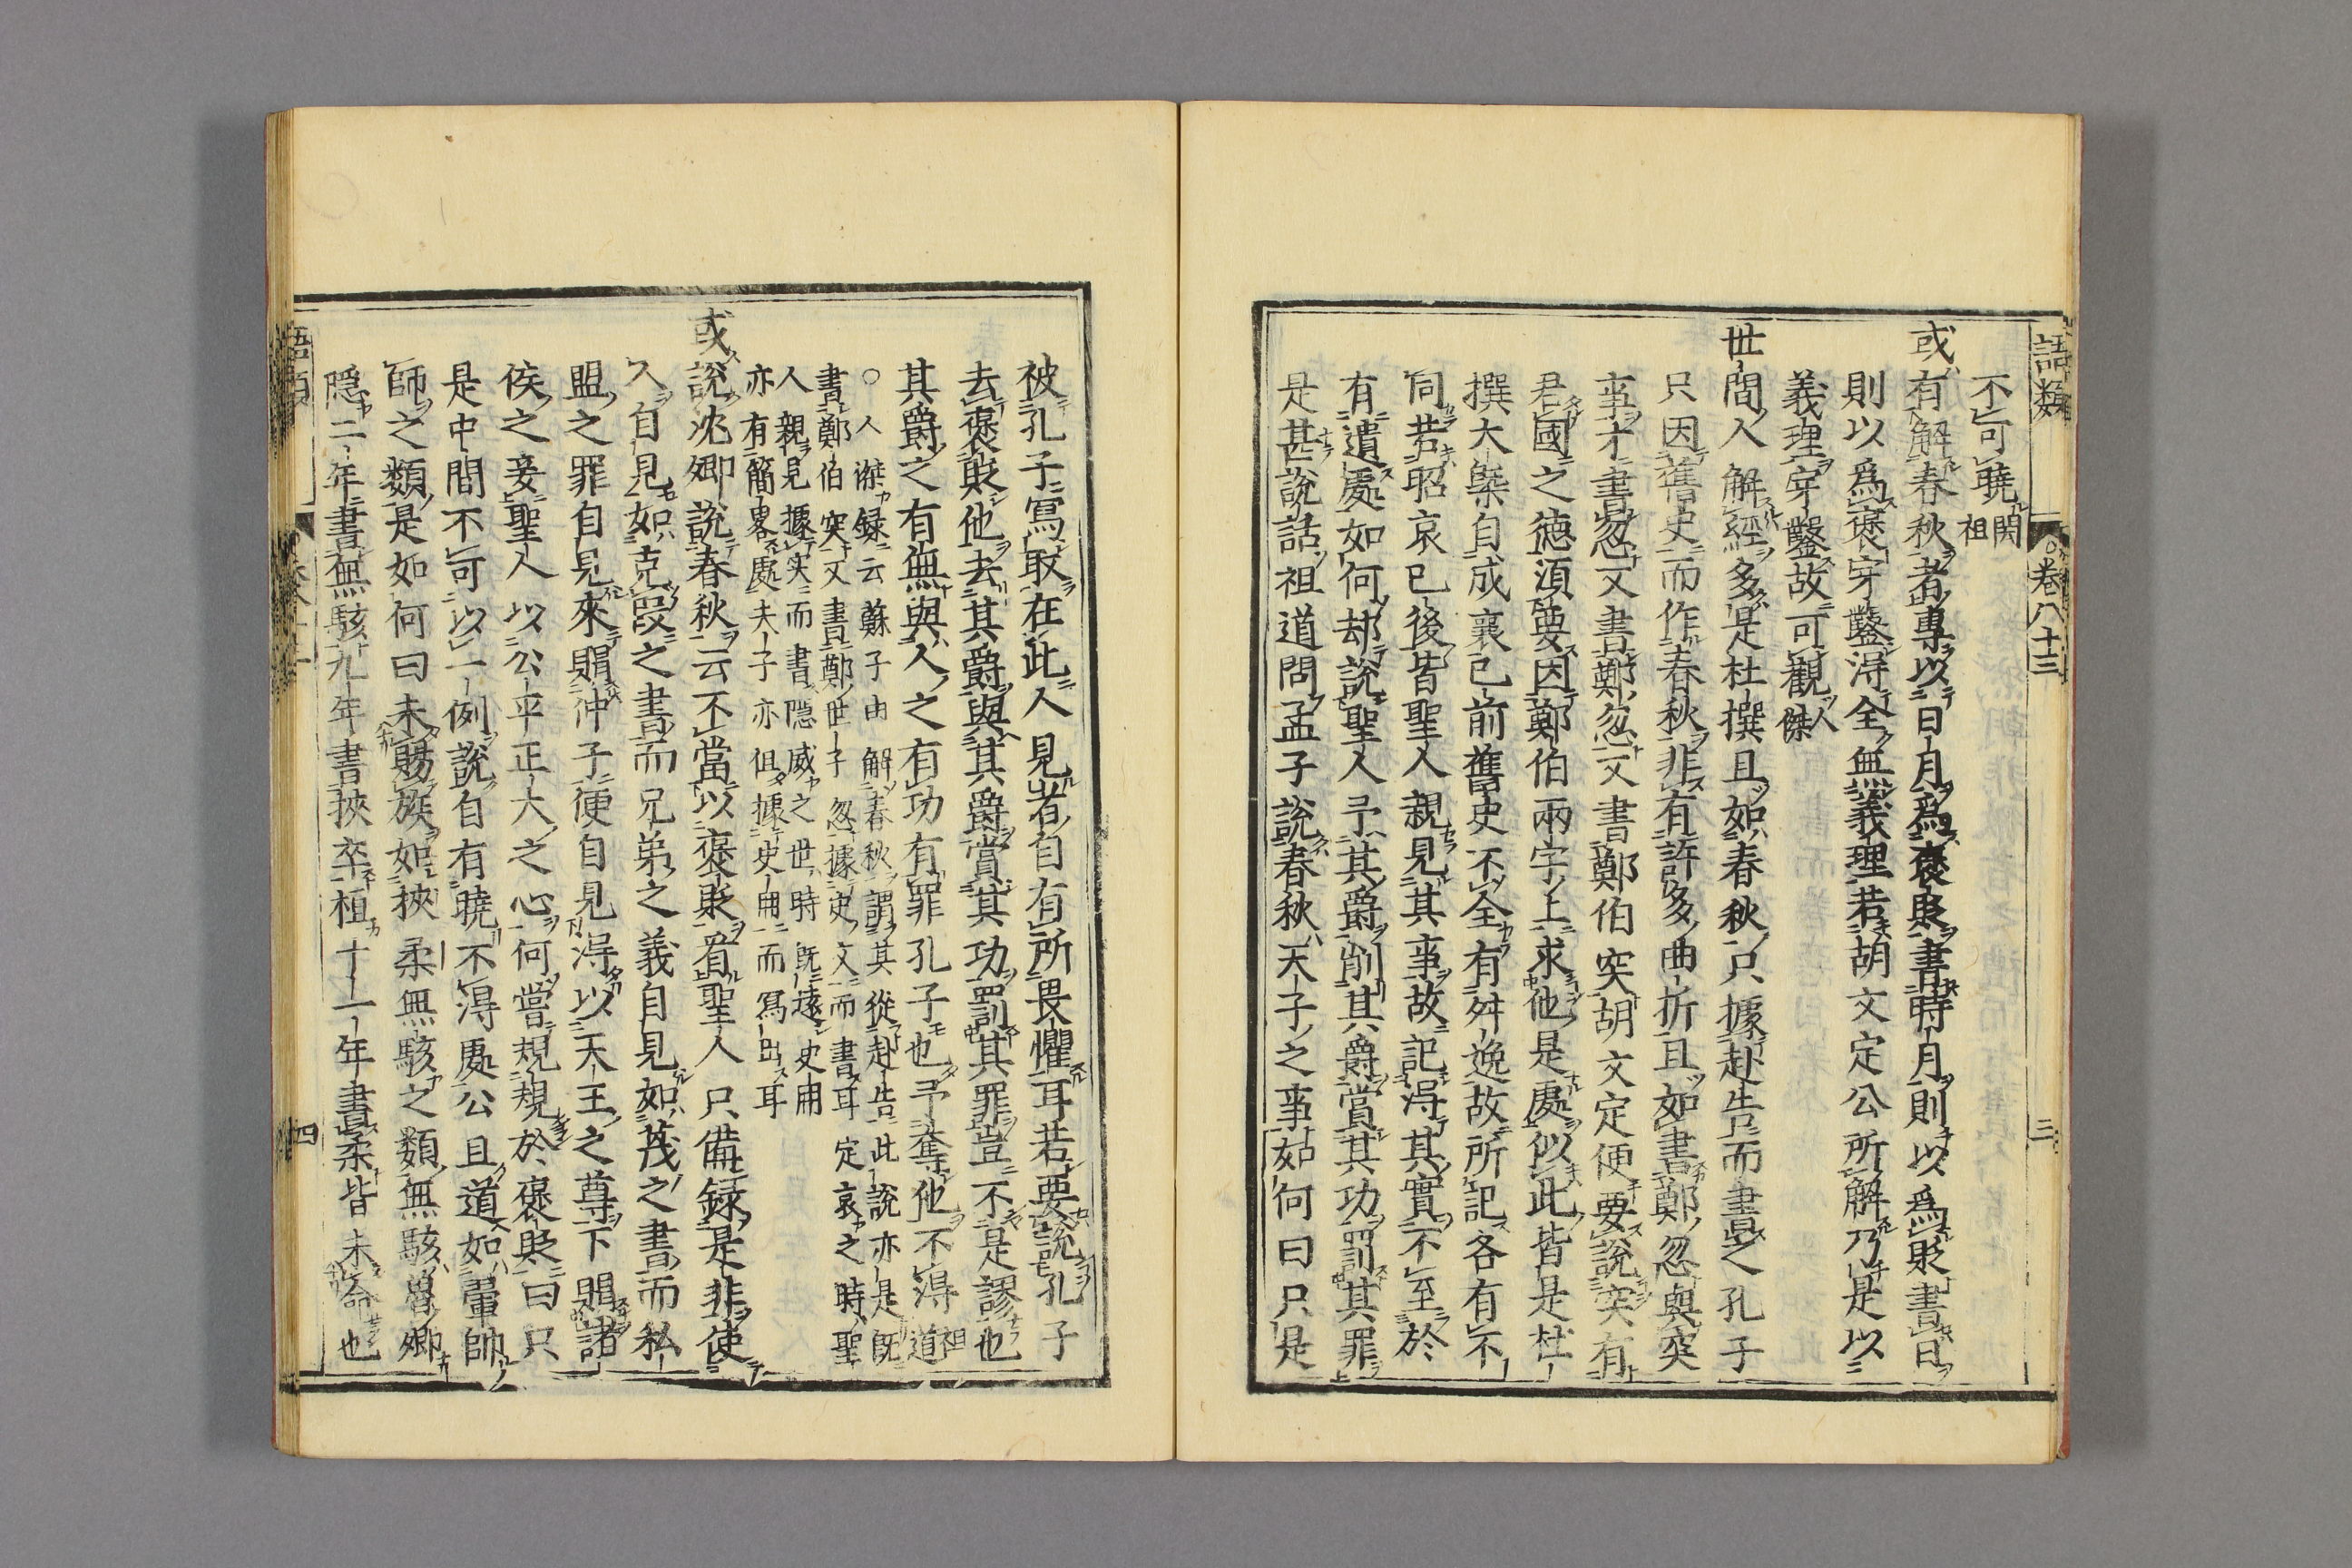 語類
卷八十三
三
不可曉閎祖
或有解春秋者專以日月爲襃貶書時月則以爲貶書日
則以爲襃穿鑿得全無義理若胡文定公所解乃是以
義理穿鑿故可觀人傑
世間人解經多是杜撰且如春秋只據赴告而書之孔子
只因舊史而作春秋非有許多曲折且如書鄭忽與突
事才書忽又書鄭忽又書鄭伯突胡文定便要說突有
君國之德須要因鄭伯兩字上求他是處似此皆是杜
撰大槩自成襄已前舊史不全有舛逸故所記各有不
同若昭哀已後皆聖人親見其事故記得其實不至於
有遺處如何却說聖人予其爵削其爵賞其功罰其罪
是甚說話祖道問孟子說春秋天子之事如何曰只是
被孔子寫取在此人見者自有所畏懼耳若要說孔子
去襃貶他去其爵與其爵賞其功罰其罪豈不是謬也
其爵之有無與人之有功有罪孔子也予奪他不得祖道
○人傑録云蘇子由解春秋謂其從赴告此說亦是旣
書鄭伯突又書鄭世子忽據史文而書耳定哀之時聖
人親見據实而書隱威之世時旣遠史冊
亦有簡畧處夫子亦但據史冊而寫出耳
或說沈卿說春秋云不當以襃貶看聖人只備録是非使
人自見如克段之書而兄弟之義自見如蔑之書而私
盟之罪自見來賵仲子便自見得以天王之尊下賵諸
侯之妾聖人以公平正大之心何嘗規規於襃貶曰只
是中間不可以一例說自有曉不得處公且道如翬帥
師之類是如何曰未賜族如挾柔無駭之類無駭魯卿
隱二年書無駭九年書挾卒桓十一年書柔皆未命也
語類
四